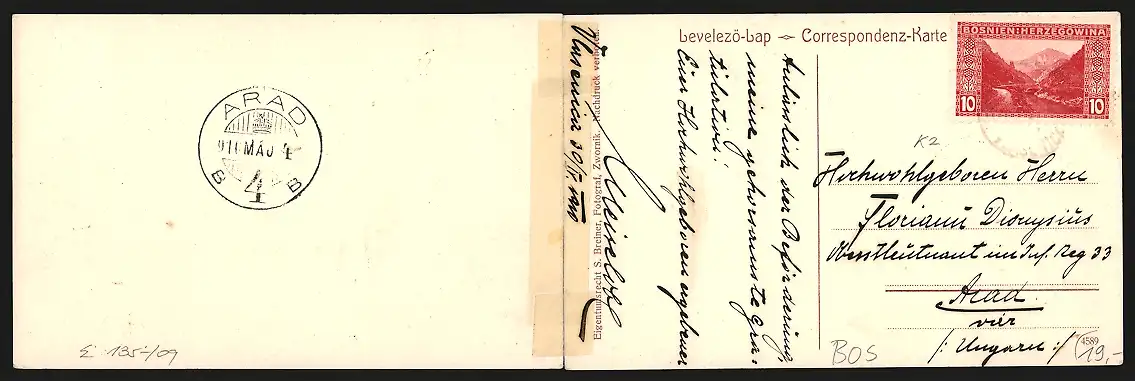 ARAD
910 MÁJ 4
B 4 B
E 135-/09
Eigentumsrecht S. Breiner, Fotograf, Zwornik. Nachdruck verboten.
Vlasenica 30/IV 1910
Levelező-Lap Correspondenz-Karte
BOSNIEN-HERZEGOWINA
10 10
Anlässlich der Beförderung,
meine gehorsamste Gra:
tulation!
Euer Hochwohlgeboren ergebener
K2
Hochwohlgeboren Herrn
Floriann Dionysius
Oberstleutnant im Inf. Reg 33
Arad
vár
/: Ungarn :/
BOS
4589
19,-